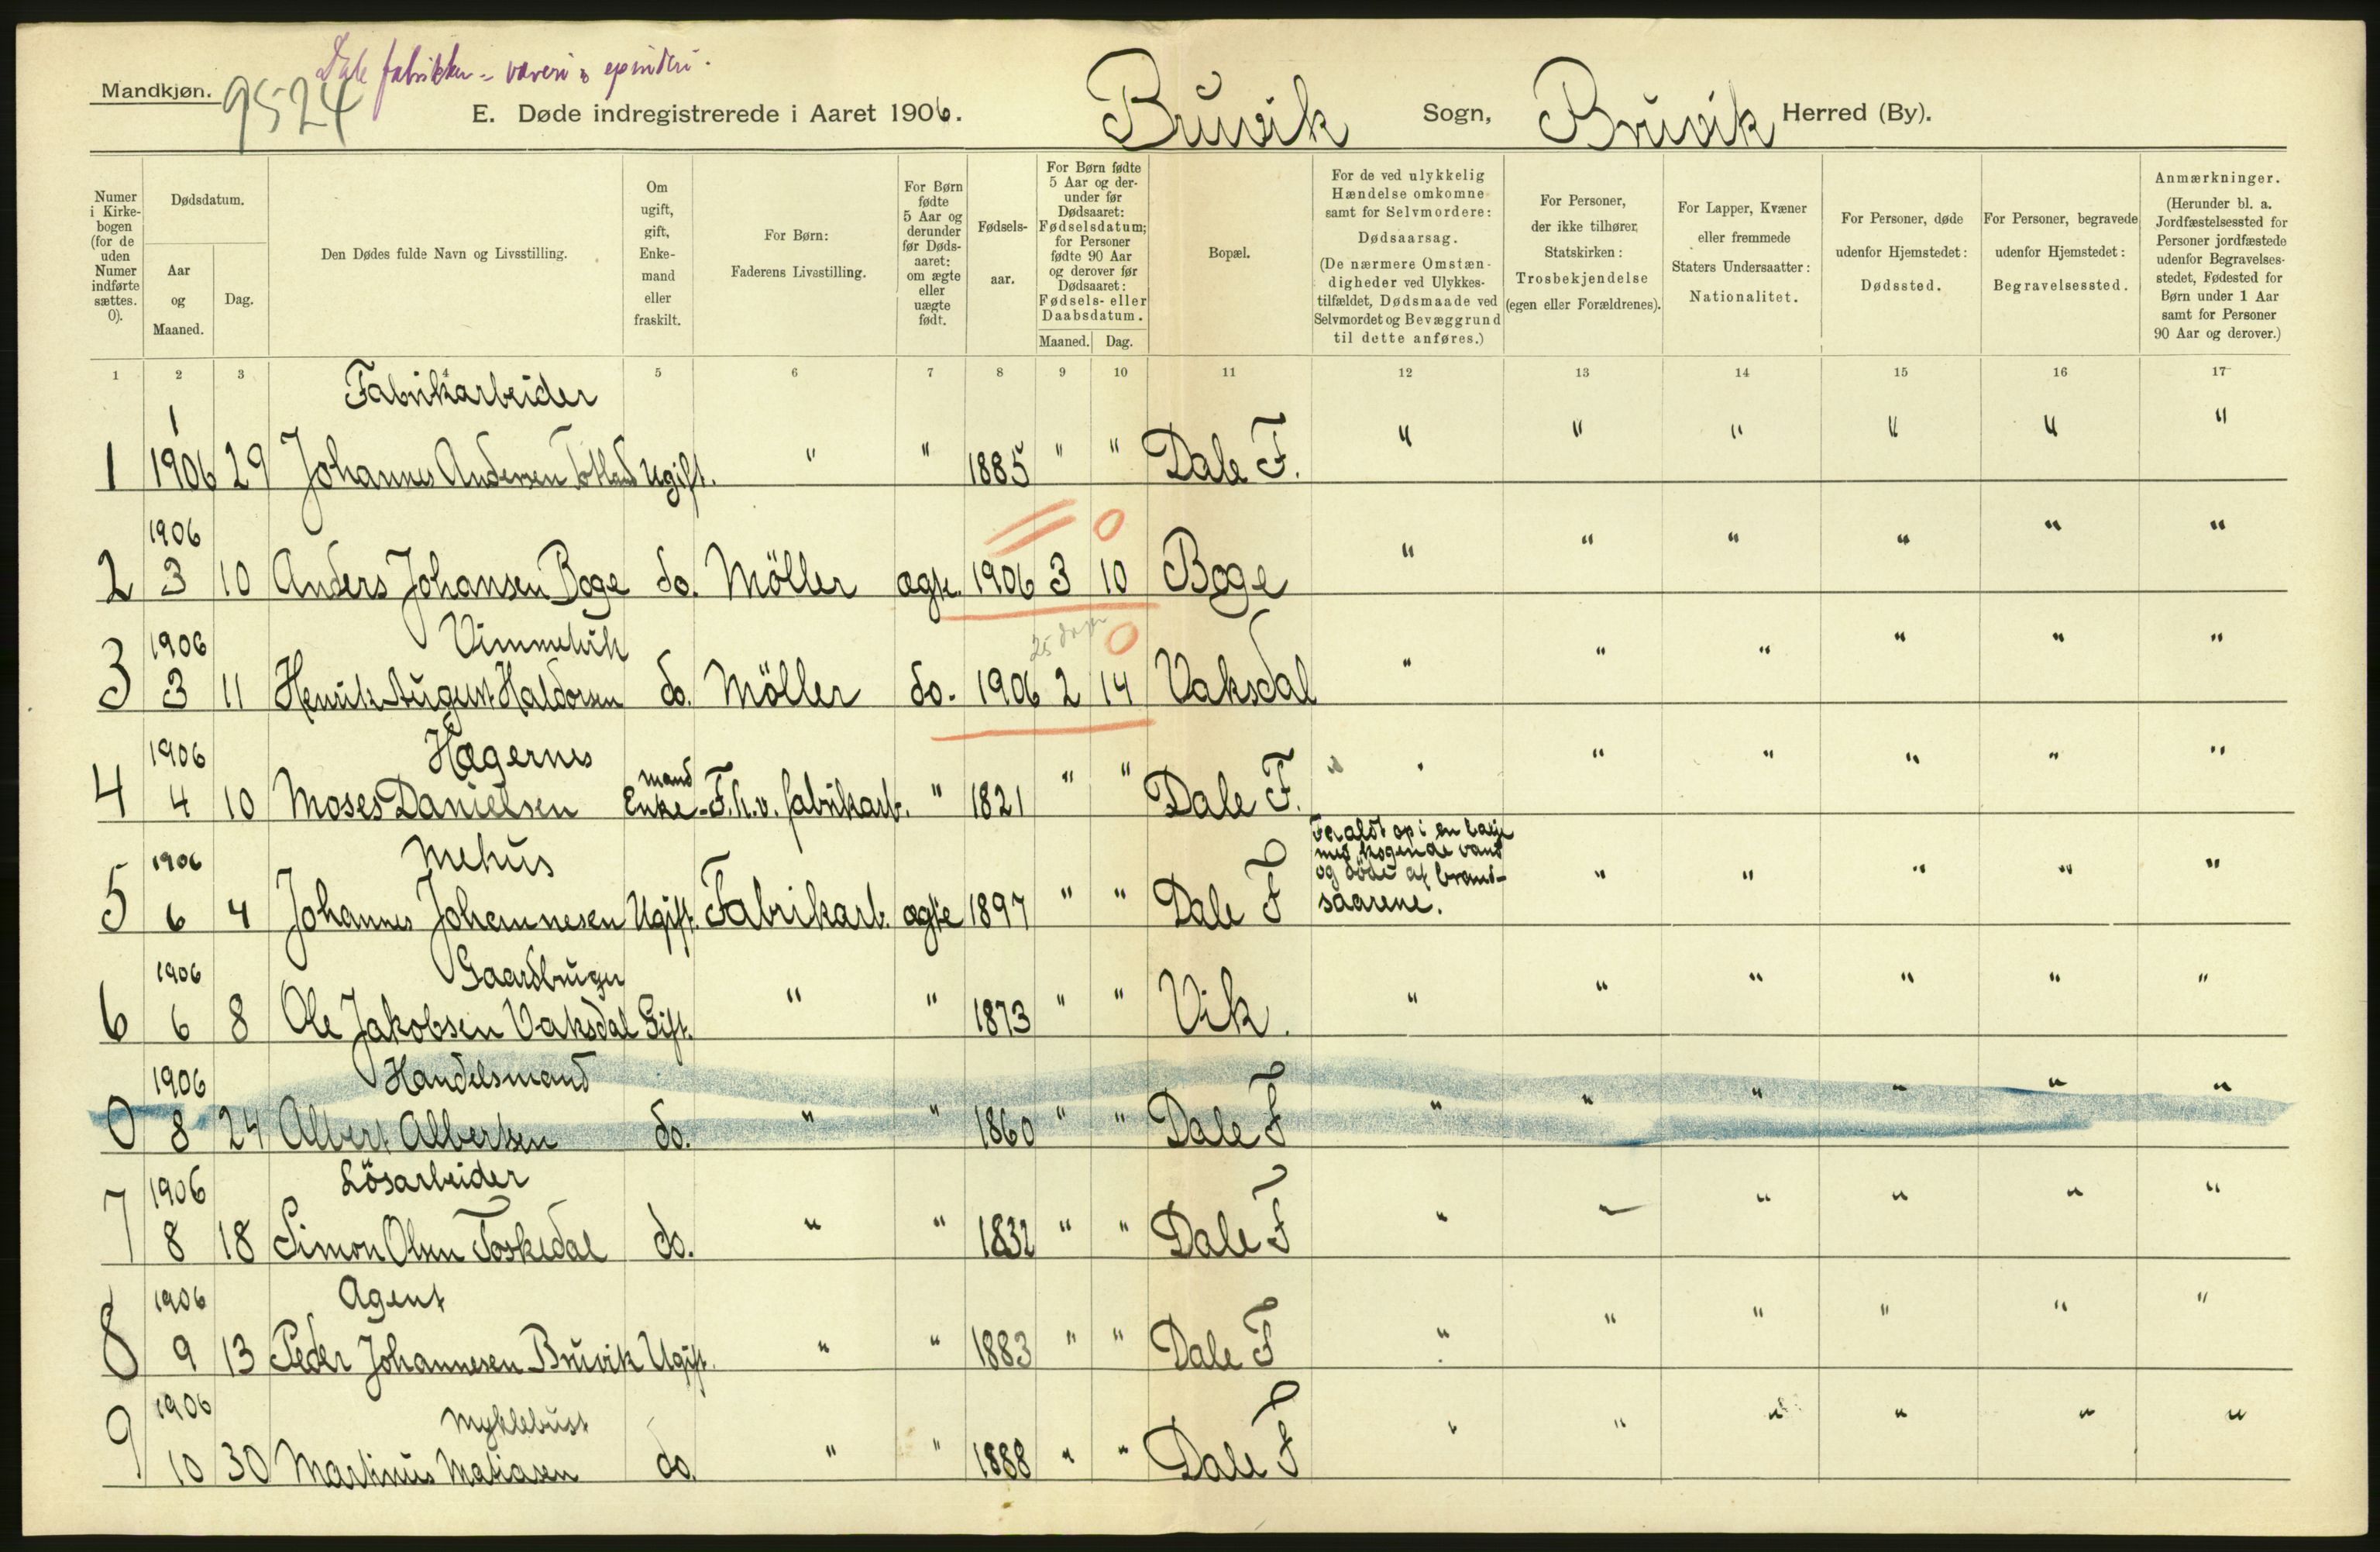 Dale fabrikker - væveri & spinderi.
Mandkjøn. 9524
E. Døde indregistrerede i Aaret 1906. Bruvik Sogn, Bruvik Herred (By).
Numer i Kirkebogen (for de uden Numer indførte sættes. 0).
Dødsdatum.
Aar og Maaned.
Dag.
Den Dødes fulde Navn og Livsstilling.
Om ugift, gift, Enkemand eller fraskilt.
For Børn: Faderens Livsstilling.
For Børn fødte 5 Aar og derunder før Dødsaaret: om ægte eller uægte født.
Fødselsaar.
For Børn fødte 5 Aar og derunder før Dødsaaret: Fødselsdatum; for Personer fødte 90 Aar og derover før Dødsaaret: Fødsels- eller Daabsdatum.
Maaned. Dag.
Bopæl.
For de ved ulykkelig Hændelse omkomne samt for Selvmordere: Dødsaarsag. (De nærmere Omstændigheder ved Ulykkestilfældet, Dødsmaade ved Selvmordet og Bevæggrund til dette anføres.)
For Personer, der ikke tilhører Statskirken: Trosbekjendelse (egen eller Forældrenes).
For Lapper, Kvæner eller fremmede Staters Undersaatter: Nationalitet.
For Personer, døde udenfor Hjemstedet: Dødssted.
For Personer, begravede udenfor Hjemstedet: Begravelsessted.
Anmærkninger. (Herunder bl. a. Jordfæstelsessted for Personer jordfæstede udenfor Begravelsesstedet, Fødested for Børn under 1 Aar samt for Personer 90 Aar og derover.)
1 2 3 5 6 7 8 9 10 11 12 13 14 15 16 17
1 Fabrikarbeider
1 1906 29 Johannes Andersen Totland Ugift. " " 1885 " " Dale F. " " " " " "
1906 0
2 3 10 Anders Johansen Boge do. Möller ægte. 1906 3 10 Boge " " " " " "
1906 Vimmelvik 25 dage 0
3 3 11 Henrik August Haldorsen do. Möller do. 1906 2 14 Vaksdal " " " " " "
1906 Hægernes mand
4 4 10 Moses Danielsen Enke- F.h.v. fabrikarb. " 1821 " " Dale F. " " " " " "
1906 Mehus Faldt op i en balje
med kogende vand
og döde af brand-
5 6 4 Johannes Johannesen Ugift. Fabrikarb. ægte 1897 " " Dale F saarene. " " " " "
1906 Gaardbruger
6 6 8 Ole Jakobsen Vaksdal Gift. " " 1873 " " Vik. " " " " " "
1906 Handelsmand
0 8 24 Albert Albertsen do. " " 1860 " " Dale F " " " " " "
1906 Lösarbeider
7 8 18 Simon Olsen Toskedal do. " " 1832 " " Dale F " " " " " "
1906 Agent
8 9 13 Peder Johannesen Bruvik Ugift. " " 1883 " " Dale F " " " " " "
1906 Myklebust
9 10 30 Martinus Matiasen do. " " 1888 " " Dale F " " " " " "